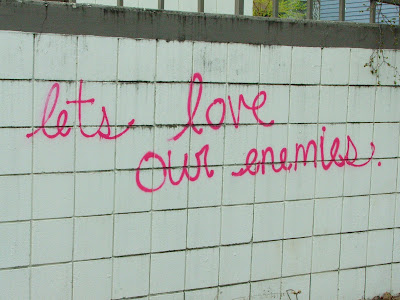 lets love
our enemies.